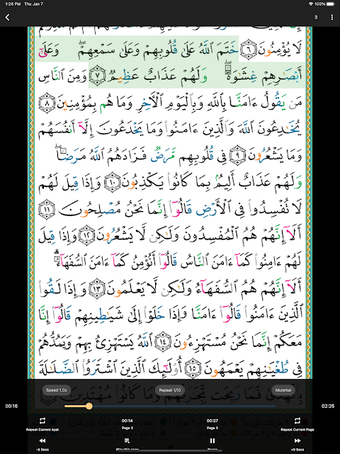 1:28 PM Thu Jan 7
100%
3
لَا يُؤْمِنُونَ ٦ خَتَمَ اللَّهُ عَلَىٰ قُلُوبِهِمْ وَعَلَىٰ سَمْعِهِمْ ۖ وَعَلَىٰ
أَبْصَارِهِمْ غِشَاوَةٌ ۖ وَلَهُمْ عَذَابٌ عَظِيمٌ ٧ وَمِنَ النَّاسِ
مَن يَقُولُ ءَامَنَّا بِاللَّهِ وَبِالْيَوْمِ الْآخِرِ وَمَا هُم بِمُؤْمِنِينَ ٨
يُخَادِعُونَ اللَّهَ وَالَّذِينَ ءَامَنُوا وَمَا يَخْدَعُونَ إِلَّا أَنفُسَهُمْ
وَمَا يَشْعُرُونَ ٩ فِي قُلُوبِهِم مَّرَضٌ فَزَادَهُمُ اللَّهُ مَرَضًا ۖ
وَلَهُمْ عَذَابٌ أَلِيمٌ بِمَا كَانُوا يَكْذِبُونَ ١٠ وَإِذَا قِيلَ لَهُمْ
لَا تُفْسِدُوا فِي الْأَرْضِ قَالُوا إِنَّمَا نَحْنُ مُصْلِحُونَ ١١
أَلَا إِنَّهُمْ هُمُ الْمُفْسِدُونَ وَلَٰكِن لَّا يَشْعُرُونَ ١٢ وَإِذَا قِيلَ
لَهُمْ ءَامِنُوا كَمَا ءَامَنَ النَّاسُ قَالُوا أَنُؤْمِنُ كَمَا ءَامَنَ السُّفَهَاءُ ۗ
أَلَا إِنَّهُمْ هُمُ السُّفَهَاءُ وَلَٰكِن لَّا يَعْلَمُونَ ١٣ وَإِذَا لَقُوا
الَّذِينَ ءَامَنُوا قَالُوا ءَامَنَّا وَإِذَا خَلَوْا إِلَىٰ شَيَاطِينِهِمْ قَالُوا إِنَّا
مَعَكُمْ إِنَّمَا نَحْنُ مُسْتَهْزِءُونَ ١٤ اللَّهُ يَسْتَهْزِئُ بِهِمْ وَيَمُدُّهُمْ
فِي طُغْيَانِهِمْ يَعْمَهُونَ ١٥ أُولَٰئِكَ الَّذِينَ اشْتَرَوُا الضَّلَالَةَ
Speed 1.0x
Repeat 1/10
Muzammil
00:16
02:25
00:14
00:27
Repeat Current Ayat
Page 3
Page 3
Repeat Current Page
-5 Secs
+5 Secs